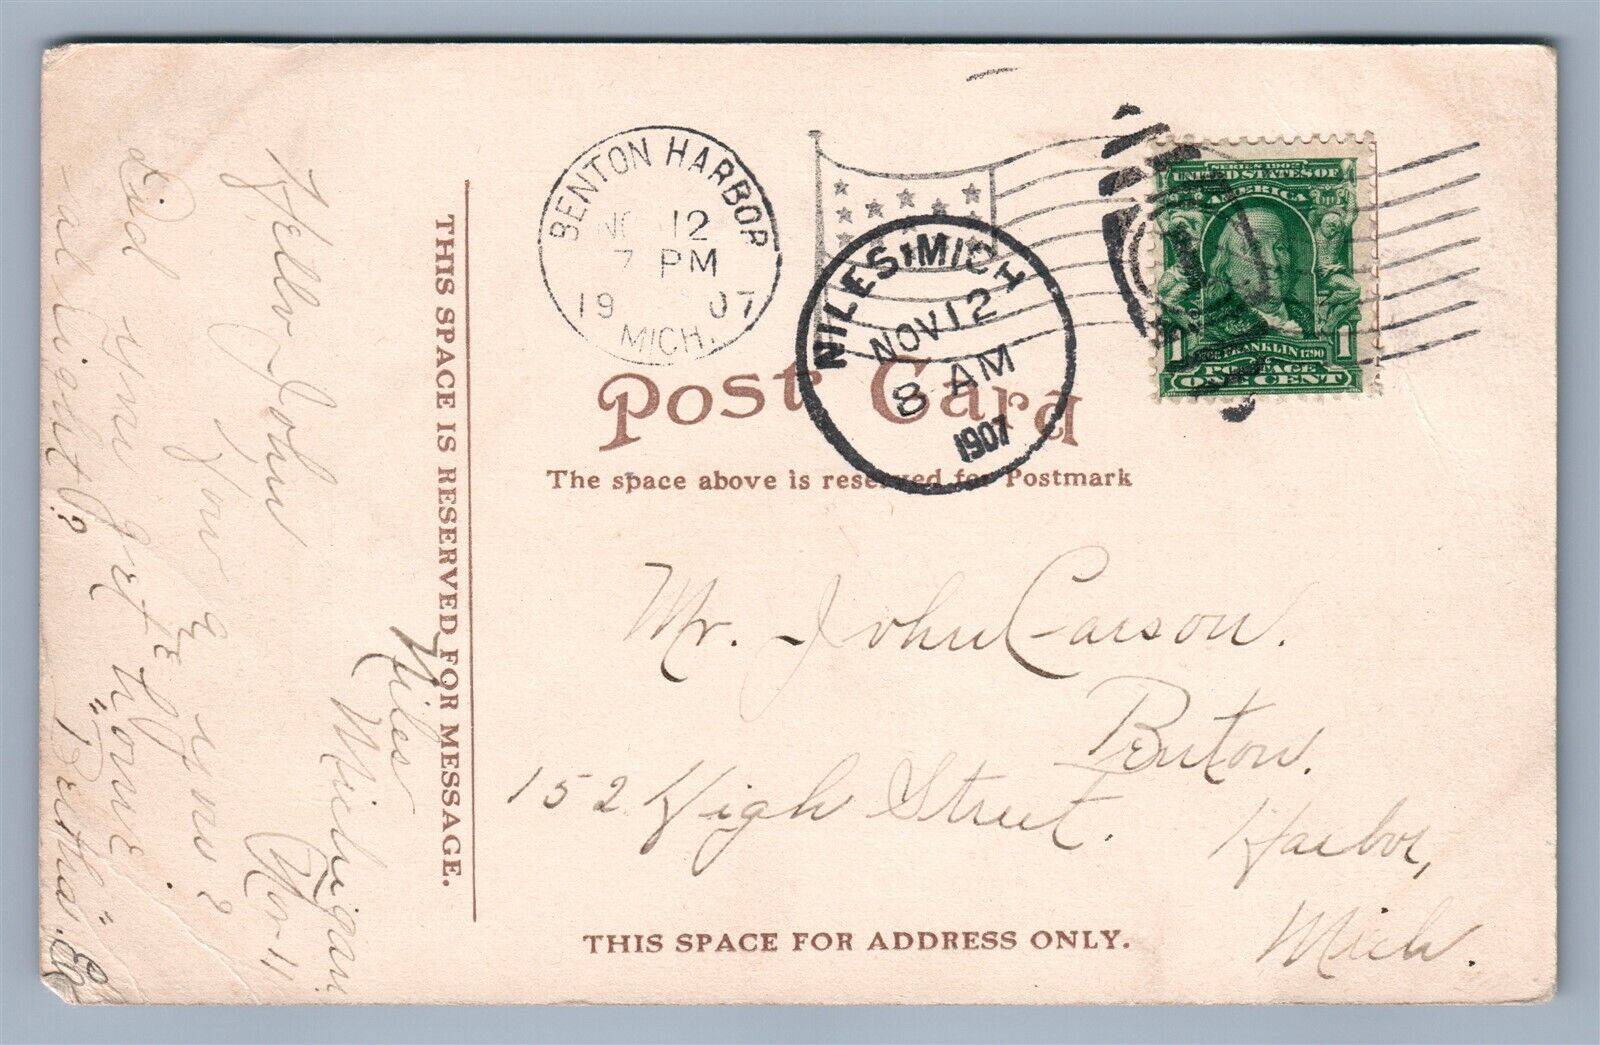 BENTON HARBOR
NO 12
7 PM
19 07
MICH.
NILES, MICH
NOV 12
8 AM
1907
SERIES 1902
UNITED STATES OF
AMERICA
FRANKLIN 1790
1 1
POSTAGE
ONE CENT
Post Card
The space above is reserved for Postmark
THIS SPACE IS RESERVED FOR MESSAGE.
Niles
Michigan
Nov-11
Hello John
How are you?
Did you get home
-al-right?
"Bertha"
Mr. John Carson.
Benton.
152 High Street.
Harbor,
Mich.
THIS SPACE FOR ADDRESS ONLY.